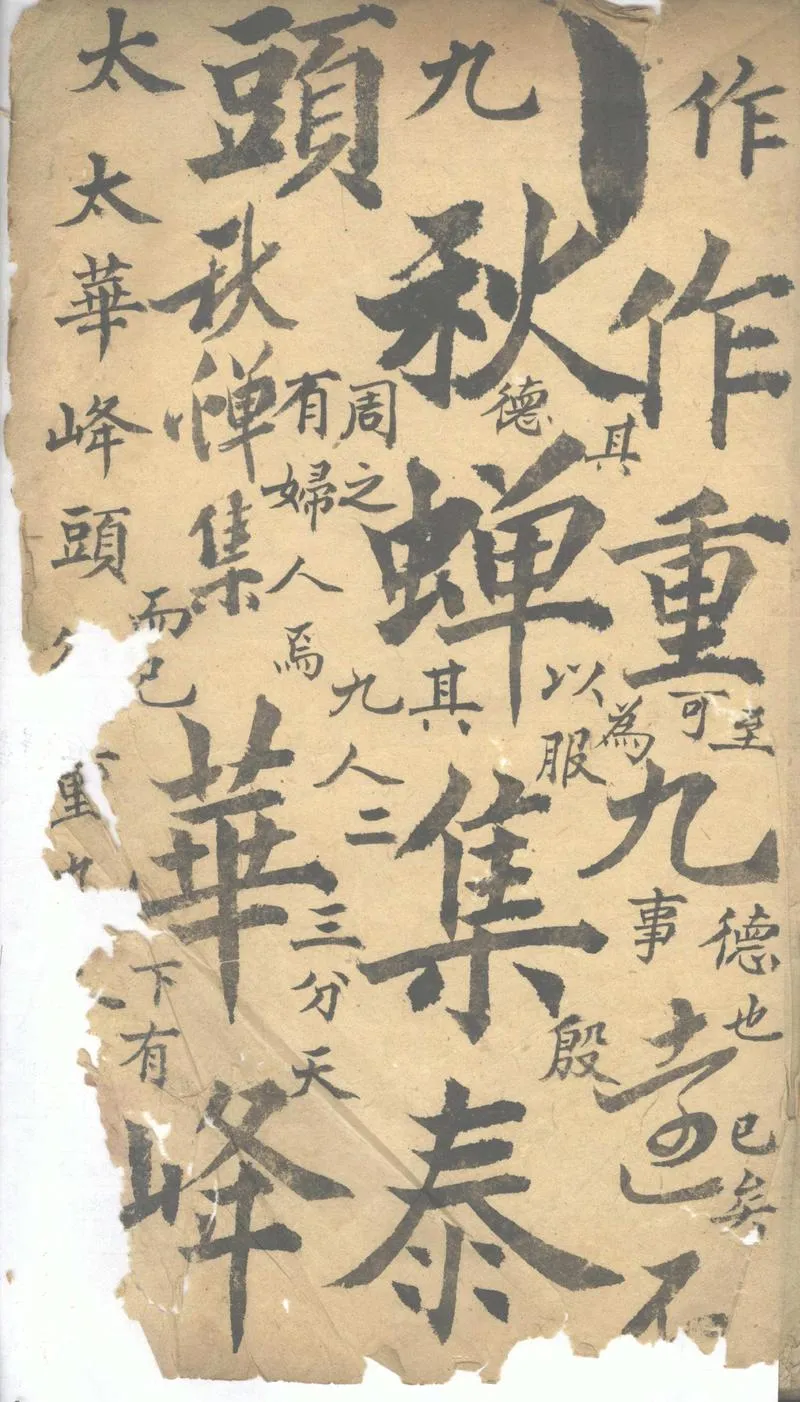 作作重九不
至德也已矣
其可為
德以服事殷
九秋蝉集泰
周之其
有婦人焉九人二
三分天
頭秋惮集華峰
而已下有
太太華峰頭
重九